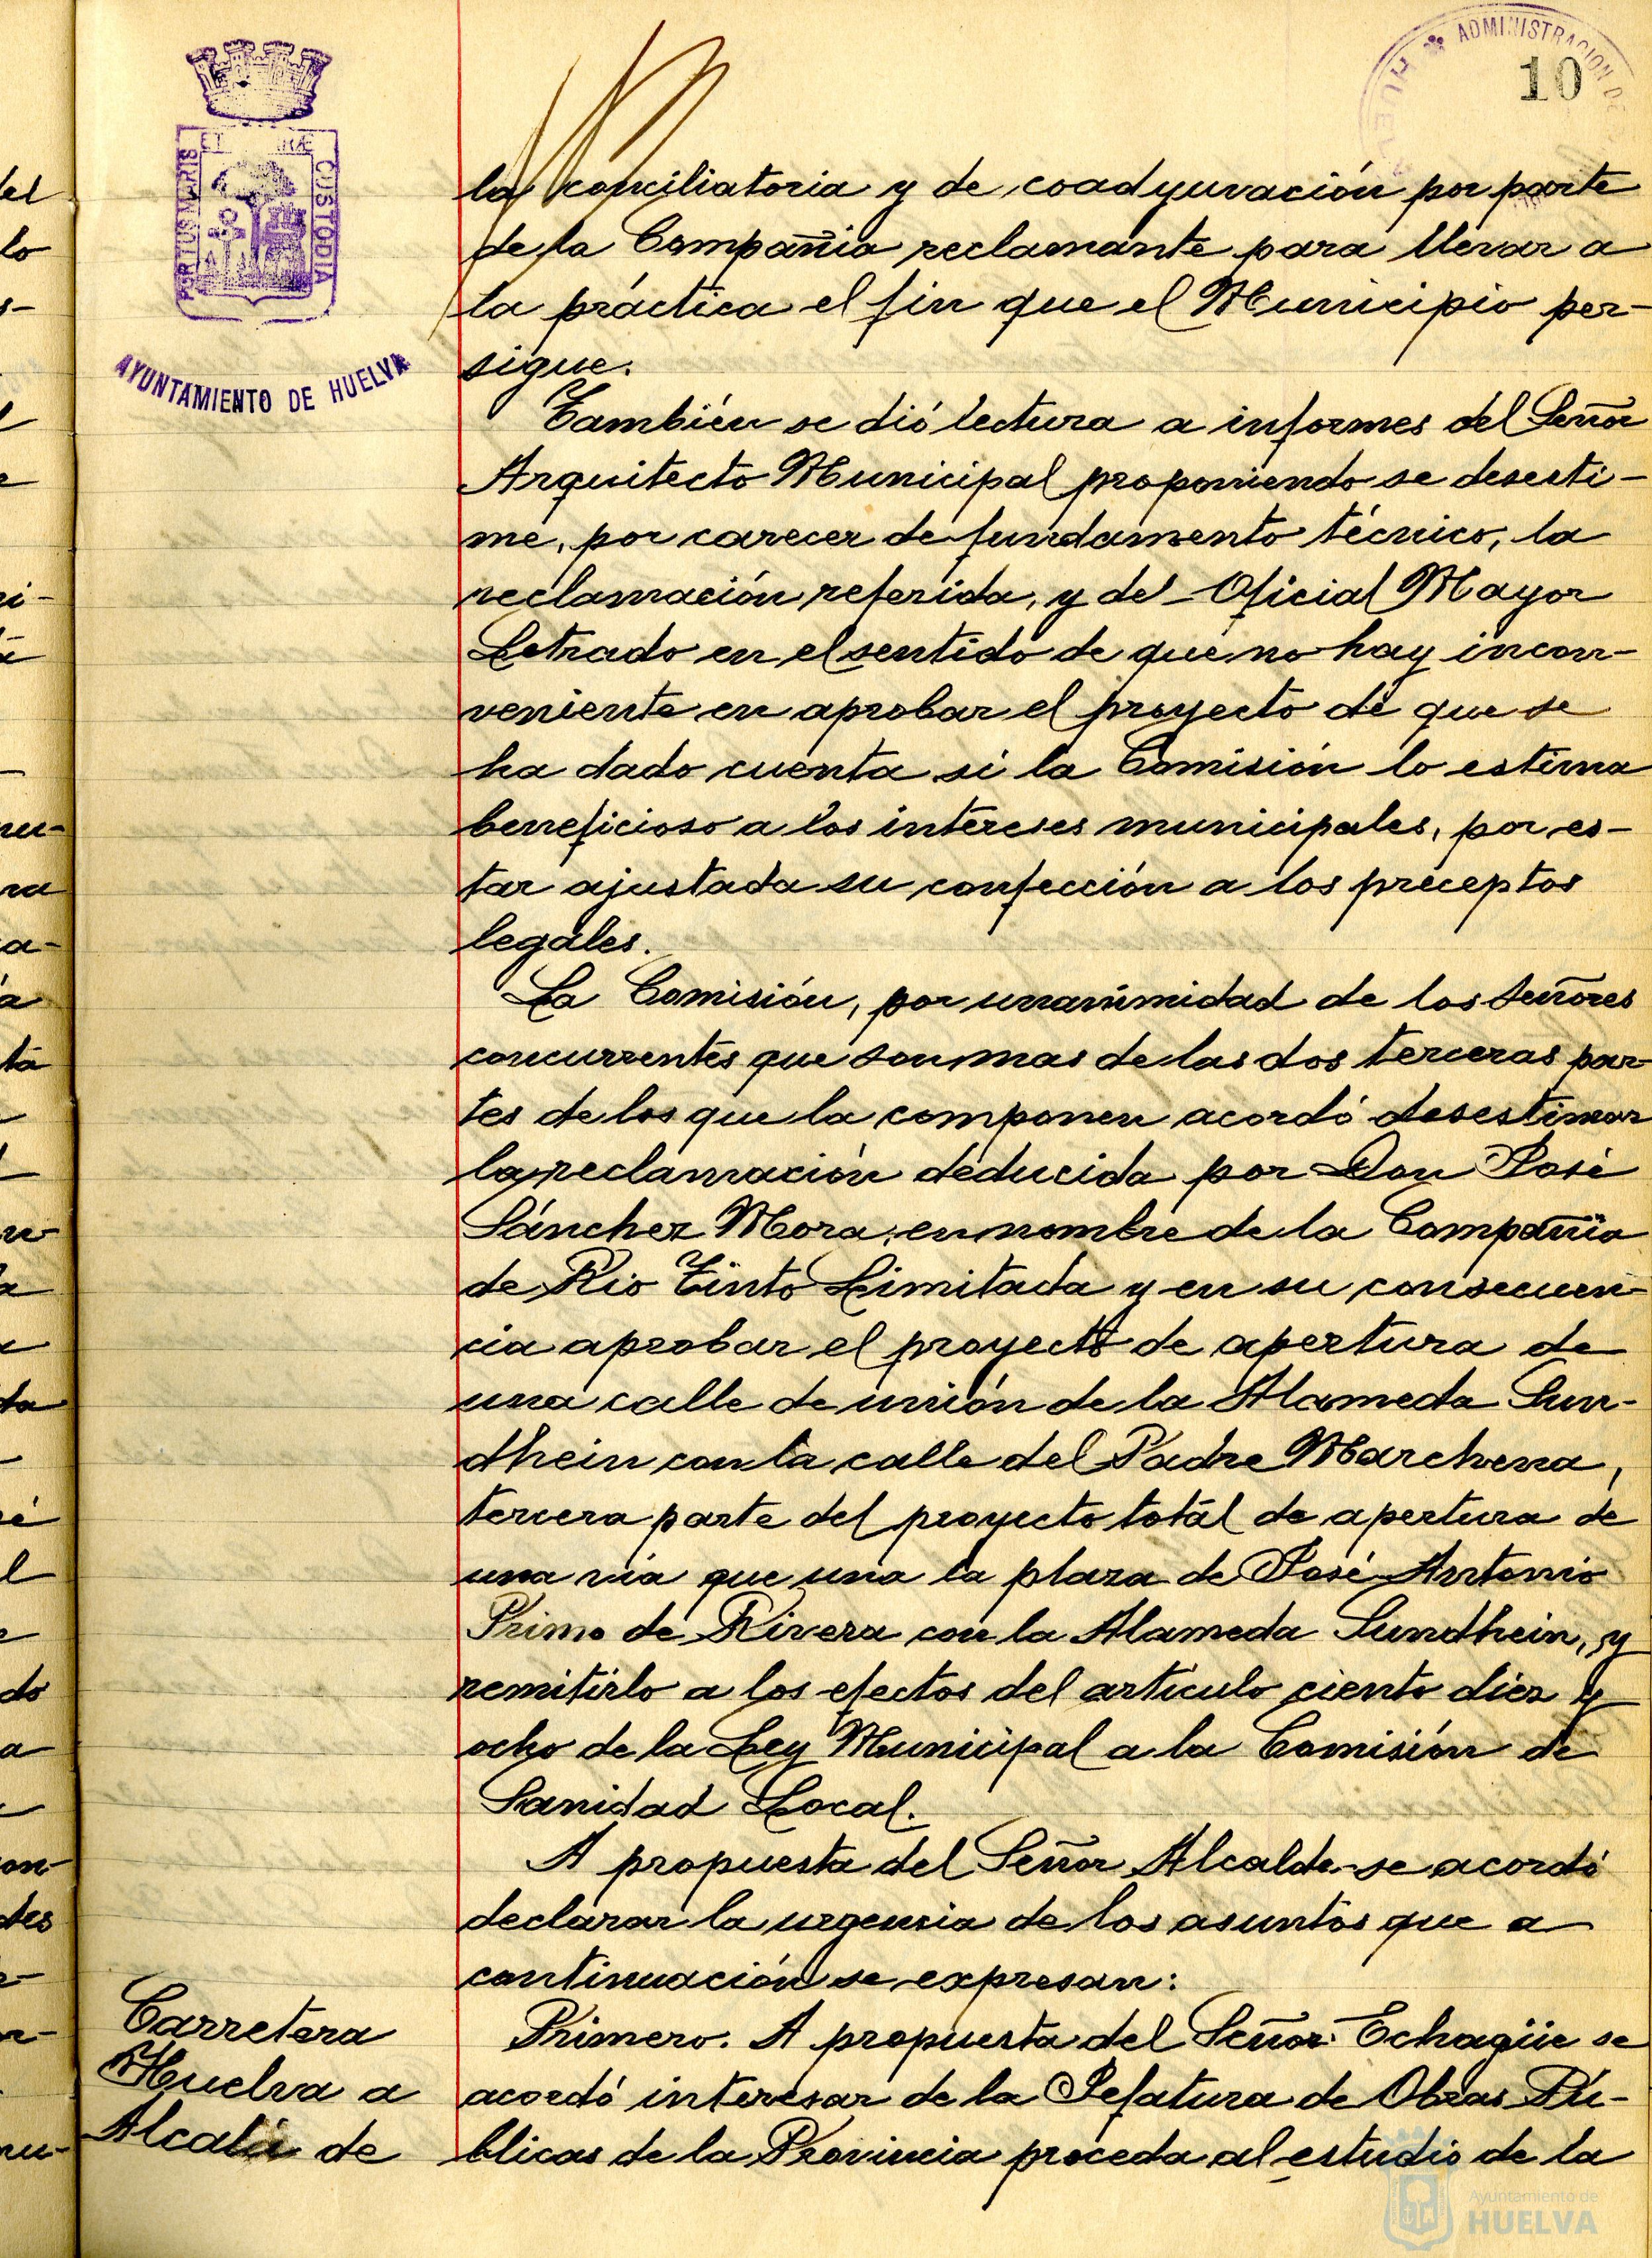 ADMINISTRACION DE
HUELVA
10
PORTUS MARIS ET CUSTODIA
AYUNTAMIENTO DE HUELVA
la conciliatoria y de coadyuvación por parte
de la Compañia reclamante para llevar a
la práctica el fin que el Municipio per-
sigue.
También se dió lectura a informes del Señor
Arquitecto Municipal proponiendo se desesti-
me, por carecer de fundamento técnico, la
reclamación referida, y del Oficial Mayor
Letrado en el sentido de que no hay incon-
veniente en aprobar el proyecto de que se
ha dado cuenta si la Comisión lo estima
beneficioso a los intereses municipales, por es-
tar ajustada su confección a los preceptos
legales.
La Comisión, por unanimidad de los Señores
concurrentes que son mas de las dos terceras par-
tes de los que la componen acordó desestimar
la reclamación deducida por Don José
Sánchez Mora, en nombre de la Compañia
de Rio Tinto Limitada y en su consecuen-
cia aprobar el proyecto de apertura de
una calle de unión de la Alameda Sun-
dhein con la calle del Padre Marchena,
tercera parte del proyecto totál de apertura de
una via que una la plaza de José Antonio
Primo de Rivera con la Alameda Sundhein, y
remitirlo a los efectos del articulo ciento diez y
ocho de la Ley Municipal a la Comisión de
Sanidad Local.
A propuesta del Señor Alcalde se acordó
declarar la urgencia de los asuntos que a
continuación se expresan:
Carretera
Huelva a
Alcalá de
Primero. A propuesta del Señor Echagüe se
acordó interesar de la Jefatura de Obras Pú-
blicas de la Provincia proceda al estudio de la
Ayuntamiento de
HUELVA